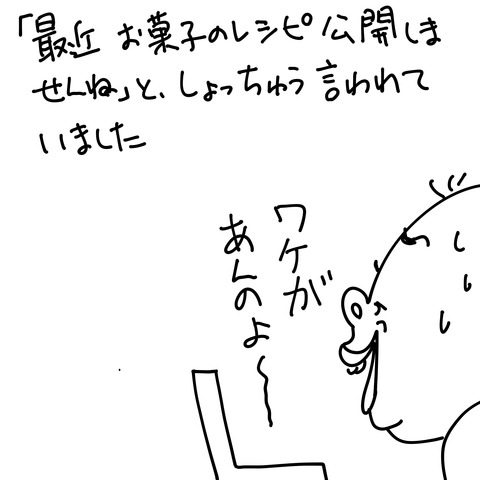 「最近 お菓子のレシピ 公開しま
せんね」と、しょっちゅう 言われて
いました
ワケが
あんのよ〜